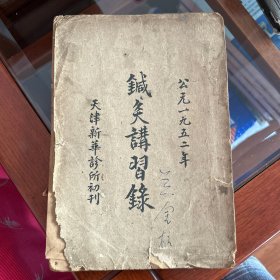 公元一九五二年
鍼灸講習錄
天津新華診所初刊